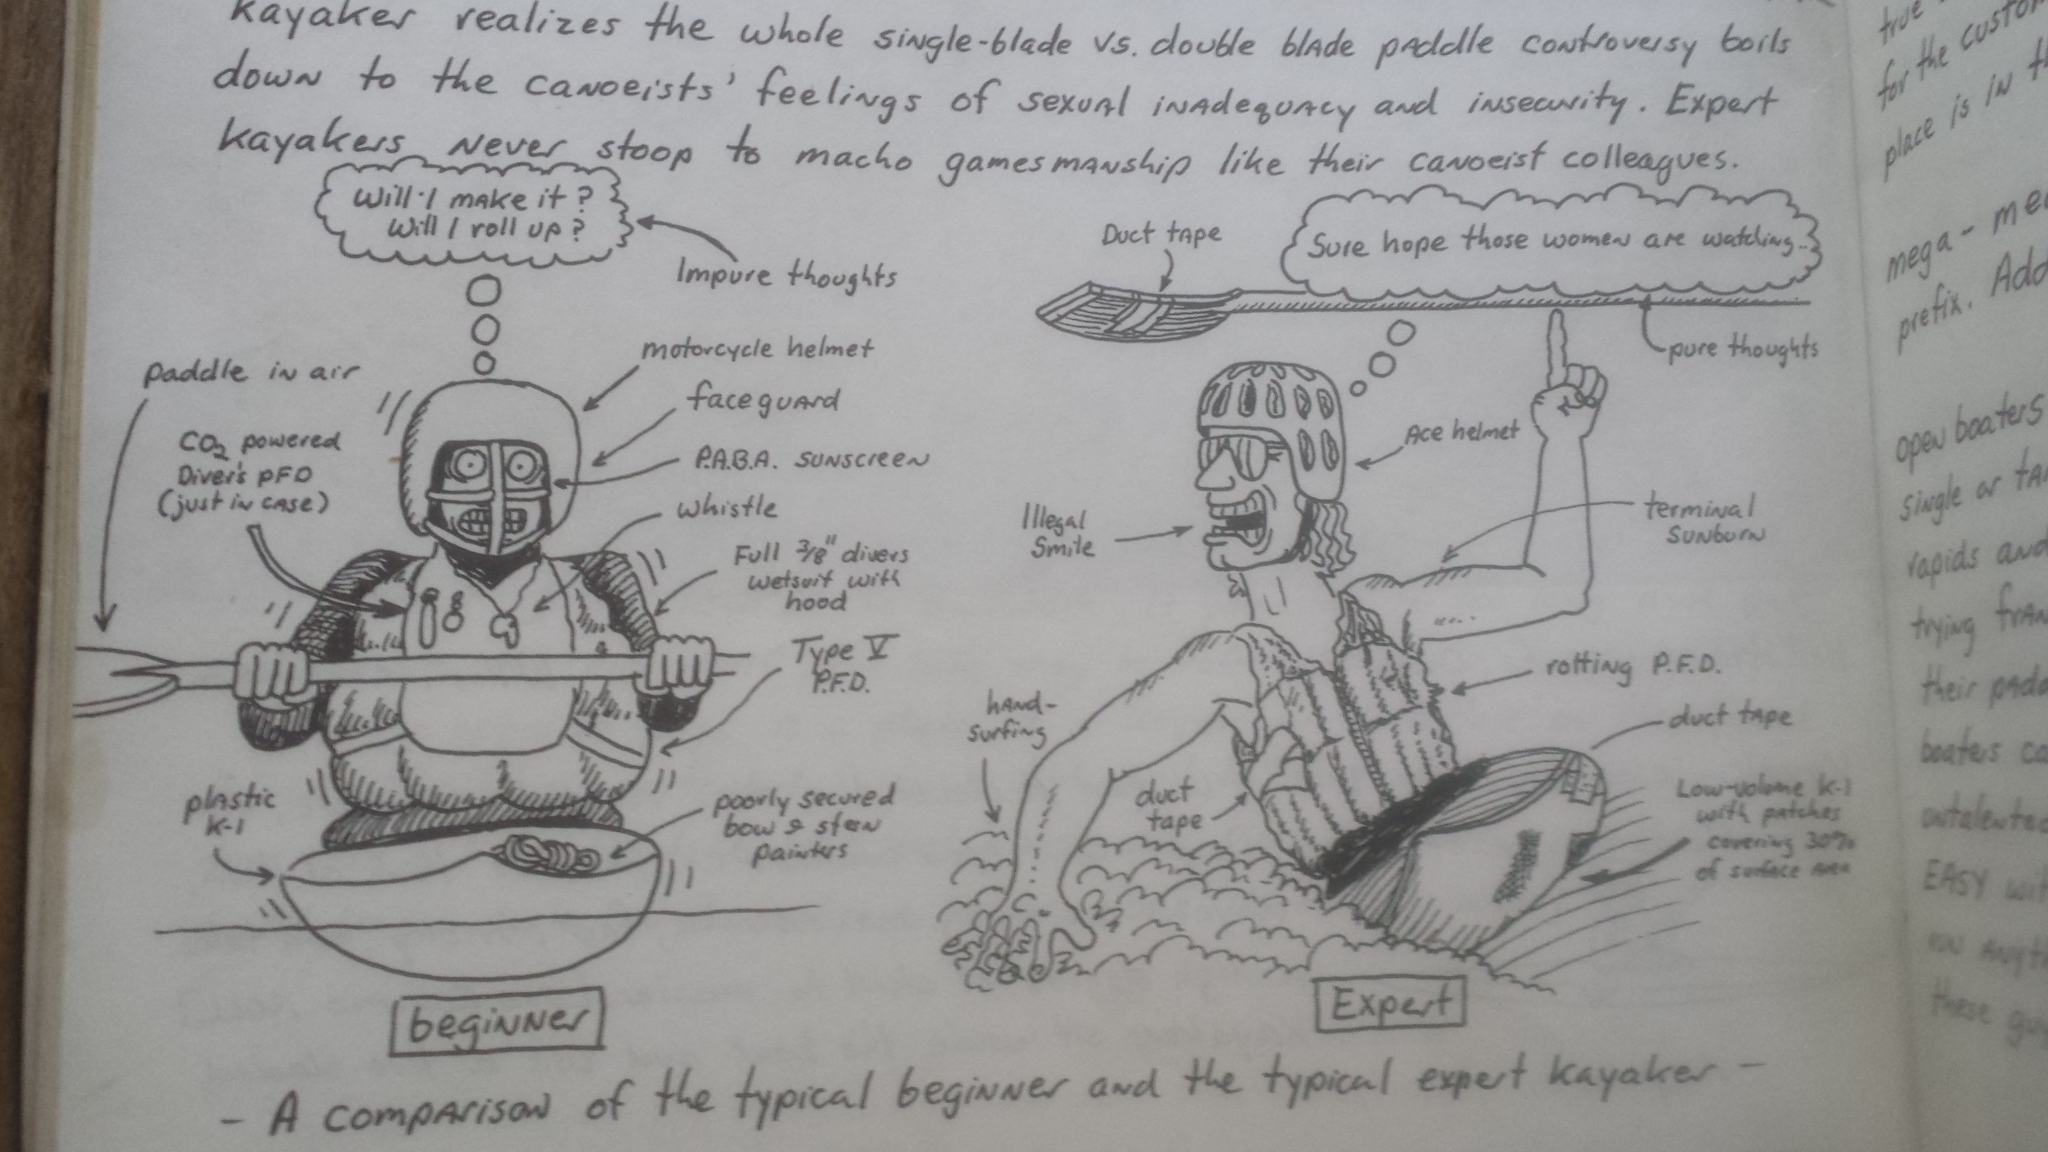 kayaker realizes the whole single-blade vs. double blade paddle controversy boils
down to the canoeists' feelings of sexual inadequacy and insecurity. Expert
kayakers never stoop to macho gamesmanship like their canoeist colleagues.
Will I make it?
Will I roll up?
Impure thoughts
motorcycle helmet
face guard
P.A.B.A. sunscreen
whistle
Full 3/8" divers
wetsuit with
hood
Type V
P.F.D.
poorly secured
bow & stern
painters
paddle in air
CO2 powered
Diver's PFD
(just in case)
plastic
K-1
beginner
Duct tape
Sure hope those women are watching...
pure thoughts
Ace helmet
Illegal
Smile
terminal
sunburn
rotting P.F.D.
duct tape
hand-
surfing
duct
tape
Low-volume K-1
with patches
covering 30%
of surface area
Expert
- A comparison of the typical beginner and the typical expert kayaker -
true
for the custom
place is in th
mega - me
prefix. Add
open boaters
single or ta
rapids and
trying fran
their padd
boaters ca
untalented
EASY wit
run anyth
these guy